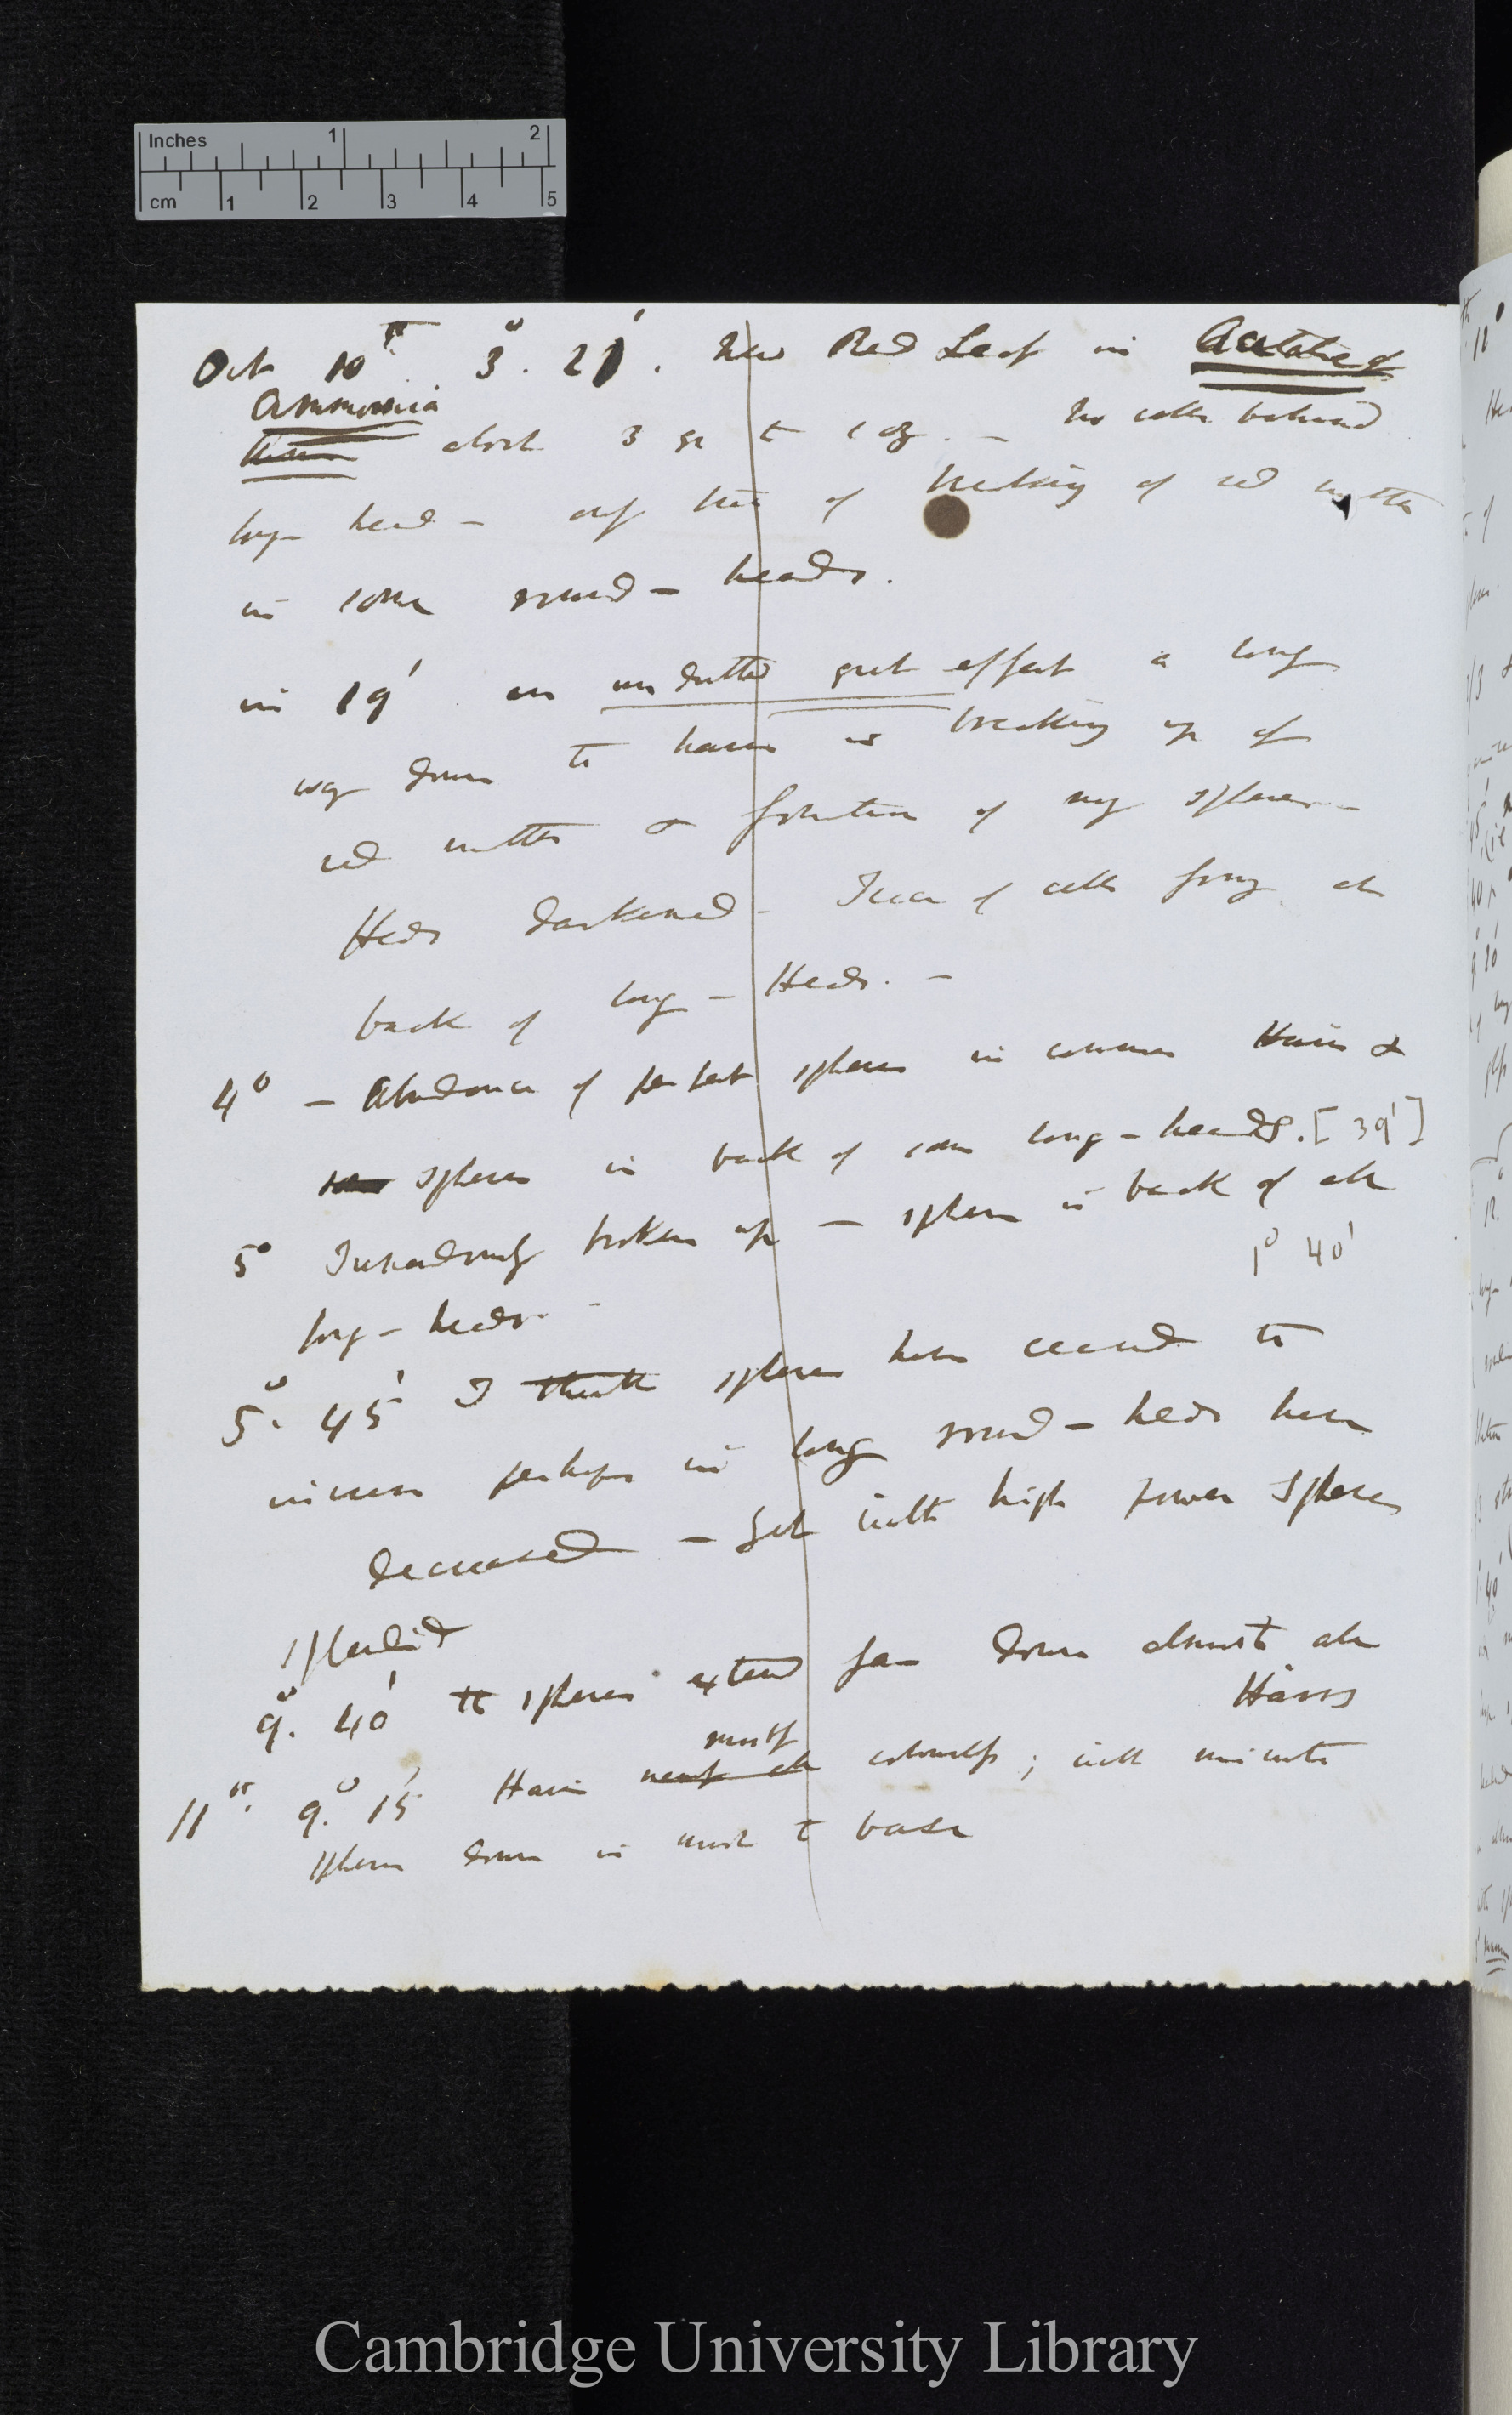 Inches 1 2
cm 1 2 3 4 5
Oct 10th. 3°. 21'. New Red Leaf in Acetate of
Ammonia
about 3 gr to 1 oz. — No cells behind
long head — only trace of breaking of red matter
in some round — heads.
in 19' an undoubted great effect a long
way down to hairs is breaking up of
red matter & formation of many spheres —
Heads darkened — Trace of cells forming at
back of long — Heads. —
4° — Abundance of perfect spheres in common Hairs &
spheres in back of some long — heads. [39']
5° broken up — spheres in back of all
1° 40'
long — heads —
5°. 45' I think spheres have ceased to
increase perhaps in long round — heads have
decreased — but with high power spheres
splendid
9°. 40' spheres extend far down almost all
Hairs
mostly
11th. 9°. 15' Hairs nearly all colourless; with minute
spheres down in most to base
Cambridge University Library